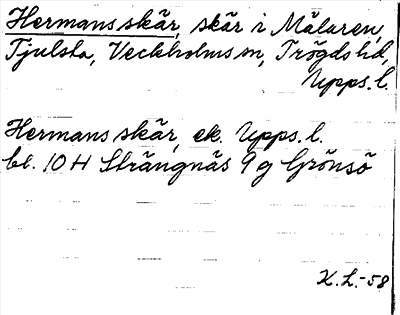 Hermansskär, skär i Mälaren,
Tjulsta, Veckholms sn, Trögds hd,
Upps. l.
Hermansskär, ek. Upps. l.
bl. 10 H Strängnäs 9 g Grönsö
K. L. -58